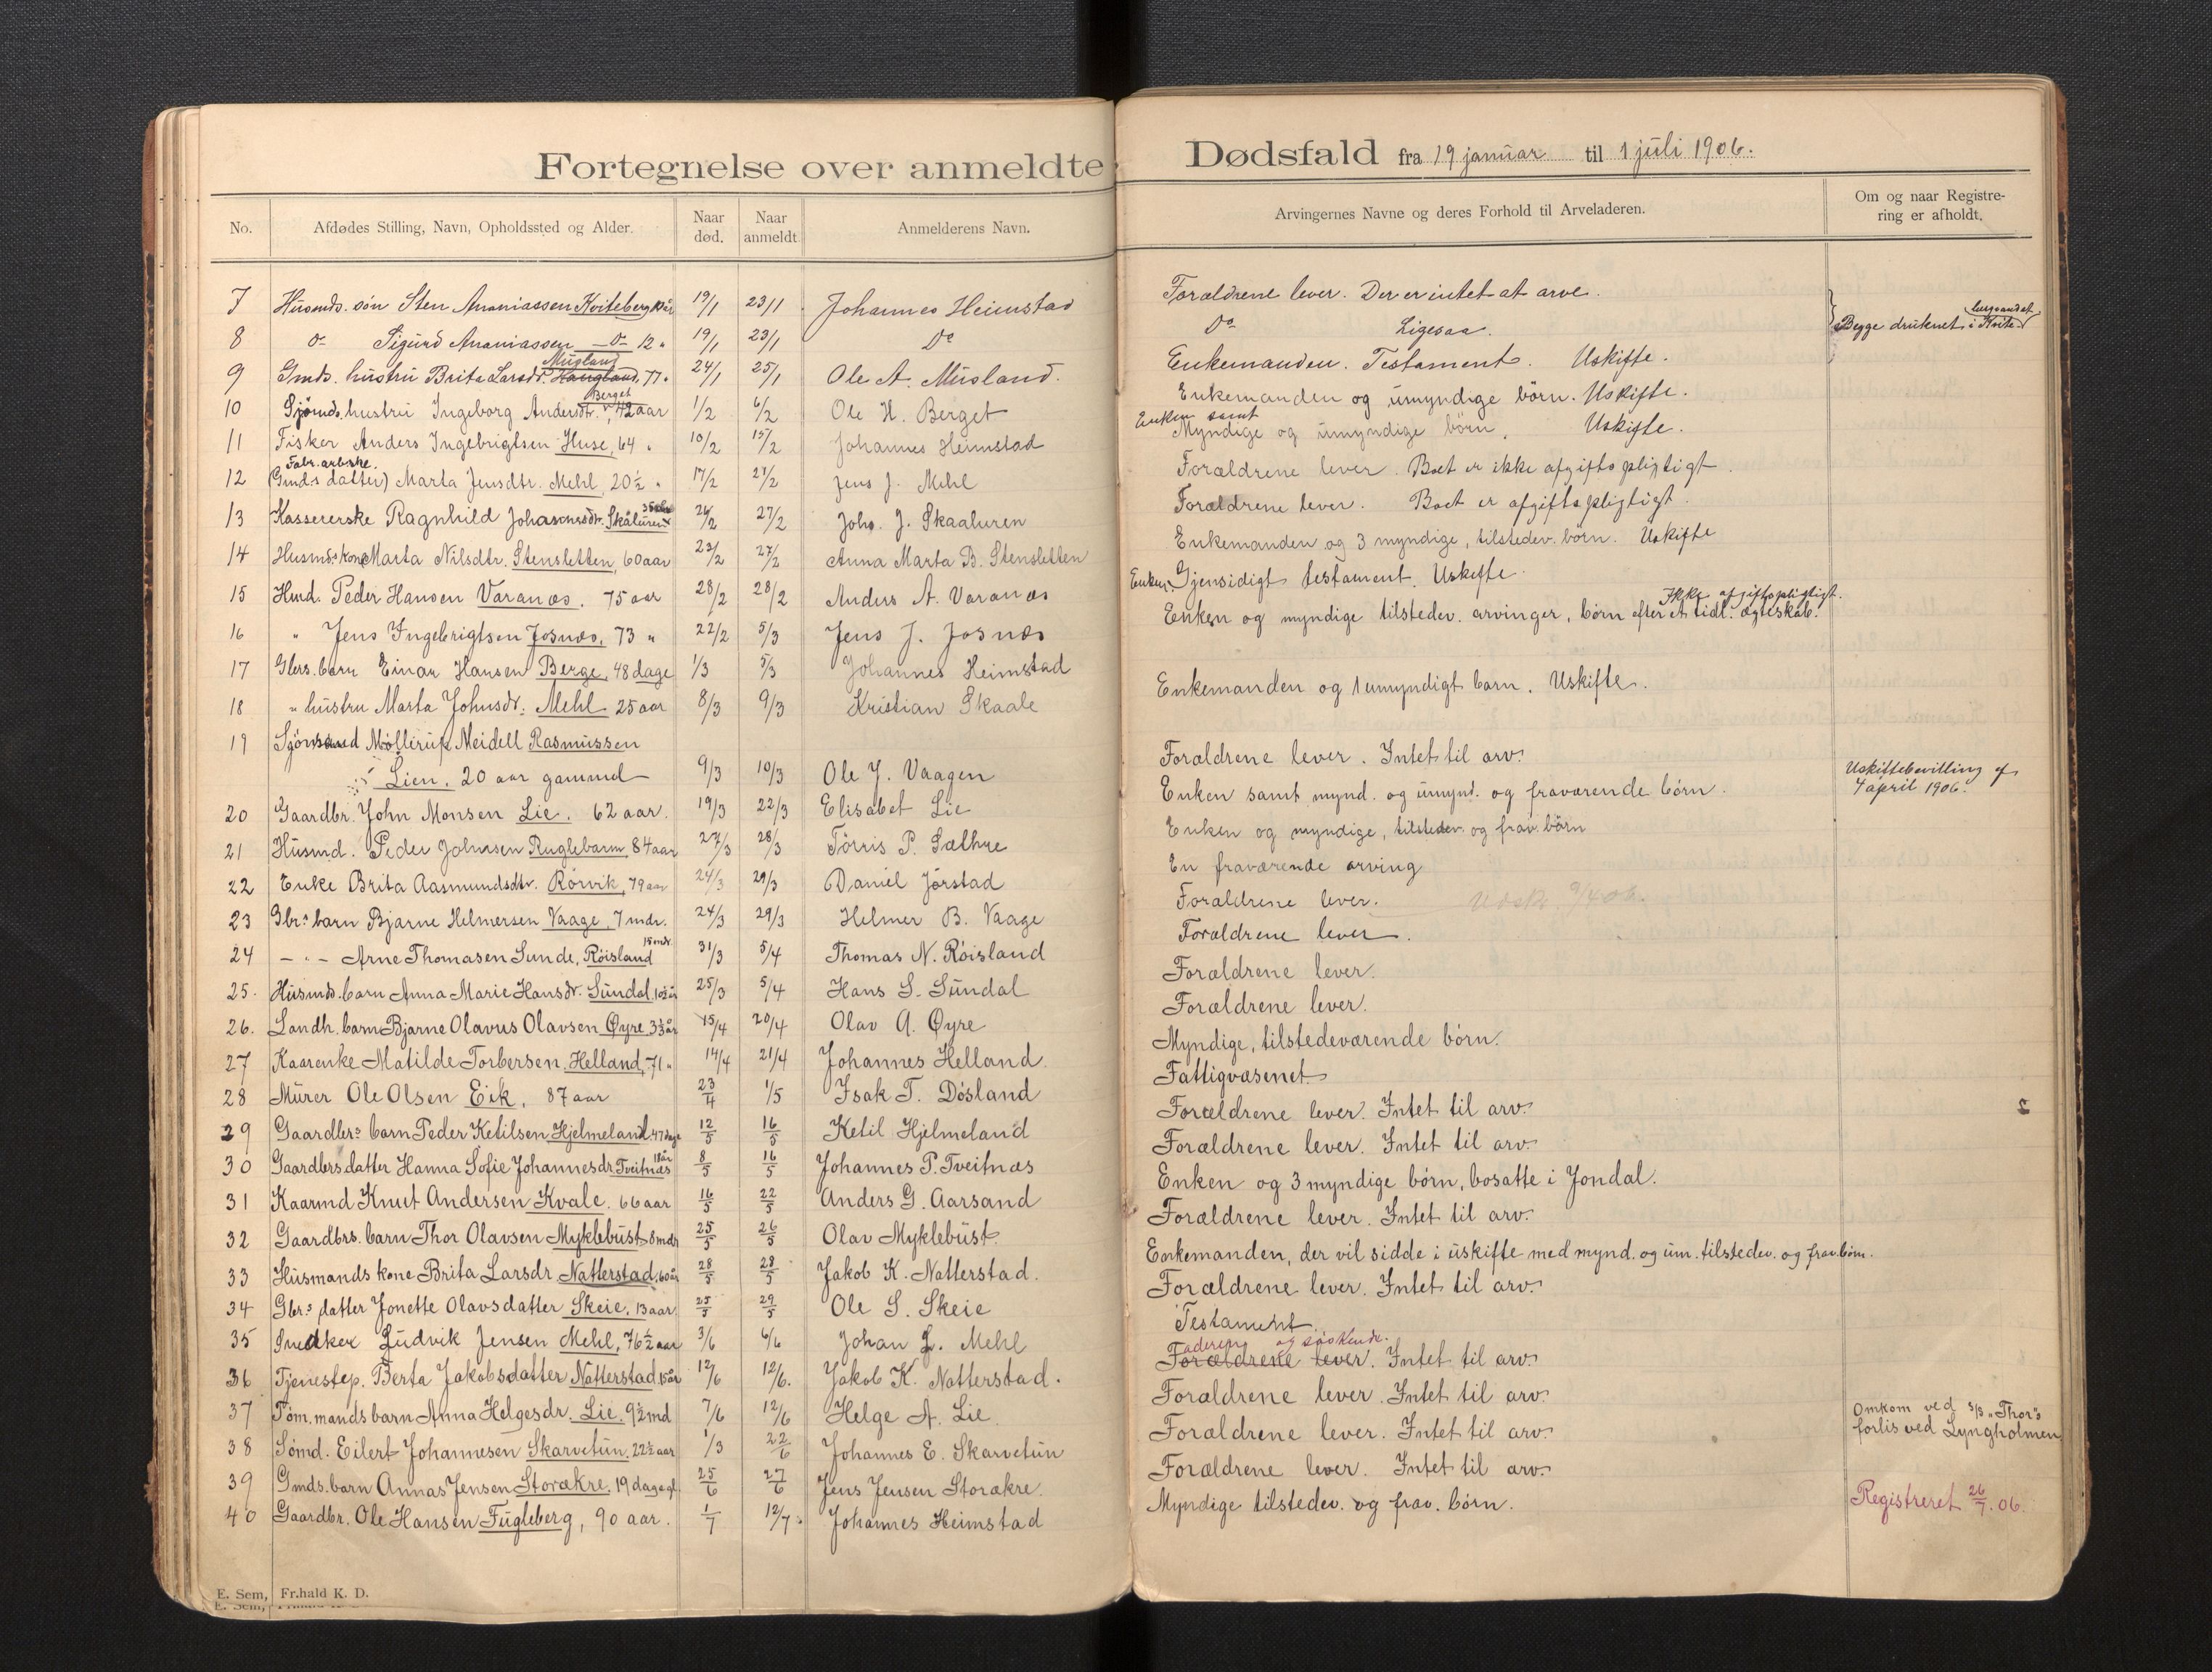 Fortegnelse over anmeldte Dødsfald fra 19 januar til 1 juli 1906.
No. Afdødes Stilling, Navn, Opholdssted og Alder. Naar død. Naar anmeldt Anmelderens Navn. Arvingernes Navne og deres Forhold til Arveladeren. Om og naar Registrering er afholdt.
7 Husmds. søn Sten Ananiassen Kviteberg 19/1 23/1 Johannes Heimstad Forældrene lever. Der er intet at arve.
8 do Sigurd Ananiassen do 12 " 19/1 23/1 Do Do Ligesaa. Begge druknet i Kvite
9 Gmds. hustru Brita Larsdr. Haugland Musland, 77 " 24/1 25/1 Ole A. Musland. Enkemanden. Testament. Uskifte.
10 Sjømds. hustru Ingeborg Andersdtr. Berget, 42 aar 1/2 6/2 Ole H. Berget Enkemanden og umyndige børn. Uskifte.
11 Fisker Anders Ingebrigtsen Huse, 64 " 10/2 15/2 Johannes Heimstad Enken samt Myndige og umyndige børn. Uskifte.
12 Fabr. arbske. (Gmds datter) Marta Jensdtr. Mehl, 20½ " 17/2 21/2 Jens J. Mehl Forældrene lever. Boet er ikke afgiftspligtigt.
13 Kassererske Ragnhild Johannesdr. Skåluren 26/2 27/2 Johs. J. Skaaluren Forældrene lever. Boet er afgiftspligtigt.
14 Husmds kone Marta Nilsdtr. Stensletten, 60 aar 22/2 27/2 Anna Marta B. Stensletten Enkemanden og 3 myndige, tilstedev. børn. Uskifte
15 Hmd. Peder Hansen Varanæs. 75 aar 28/2 28/2 Anders A. Varanæs Enken. Gjensidigt testament. Uskifte.
16 " Jens Ingebrigtsen Josnæs, 73 " 22/2 5/3 Jens J. Josnæs Enken og myndige tilstedev. arvinger, børn efter et tidl. ægteskab. Ikke afgiftspligtigt.
17 Gbrs. barn Einar Hansen Berge, 48 dage 1/3 5/3 Johannes Heimstad
18 " hustru Marta Johnsdr. Mehl 25 aar 8/3 9/3 Kristian Skaale Enkemanden og 1 umyndigt barn. Uskifte.
19 Sjømand Møllerup Meidell Rasmussen
Lien. 20 aar gammel 9/3 10/3 Ole J. Vaagen Forældrene lever. Intet til arv.
20 Gaardbr. John Monsen Lie. 62 aar. 19/3 22/3 Elisabet Lie Enken samt mynd. og umynd. og fraværende børn. Uskiftebevilling af 4 april 1906.
21 Husmd. Peder Johnsen Ruglebarm 84 aar 27/3 28/3 Tørris P. Sæthre Enken og myndige, tilstedev. og frav. børn
22 Enke Brita Aasmundsdtr. Rørvik, 79 aar 24/3 29/3 Daniel Jørstad En fraværende arving
23 Gbrs barn Bjarne Helmersen Vaage, 7 mdr. 24/3 29/3 Helmer B. Vaage Forældrene lever. Udsk. 9/4 06.
24 — " — Arne Thomasen Sunde, Røisland 15 mdr. 31/3 5/4 Thomas N. Røisland Forældrene lever.
25. Husmds. barn Anna Marie Hansdr. Sundal 25/3 5/4 Hans S. Sundal Forældrene lever.
26. Landh. barn Bjarne Olavus Olavsen Øyre 15/4 20/4 Olav A. Øyre Forældrene lever.
27 Kaarenke Matilde Torbersen, Helland, 71 " 14/4 21/4 Johannes Helland Myndige, tilstedeværende børn.
28 Murer Ole Olsen Eik. 87 aar 23/4 1/5 Isak T. Døsland Fattigvæsenet
29 Gaardbrs barn Peder Ketilsen Hjelmeland 47 dage 12/5 16/5 Ketil Hjelmeland Forældrene lever. Intet til arv.
30 Gaardbrs. datter Hanna Sofie Johannesdr. Tveitnæs 18 år 8/5 16/5 Johannes P. Tveitnæs Forældrene lever. Intet til arv.
31 Kaarmd Knut Andersen Kvale. 66 aar 16/5 22/5 Anders G. Aarsand Enken og 3 myndige børn, bosatte i Jondal.
32 Gaardbrs. barn Thor Olavsen Myklebust 8 mdr 25/5 26/5 Olav Myklebust. Forældrene lever. Intet til arv.
33 Husmands kone Brita Larsdr. Natterstad, 60 år 28/5 28/5 Jakob K. Natterstad. Enkemanden, der vil sidde i uskifte med mynd. og um. tilstedev. og frav. børn.
34 Gbrs datter Jonette Olavsdatter Skeie, 13 aar 25/5 29/5 Ole S. Skeie Forældrene lever. Intet til arv.
35 Snedker Ludvik Jensen Mehl, 76½ aar 3/6 6/6 Johan L. Mehl Testament.
36 Tjenestep. Berta Jakobsdatter Natterstad 15 år 12/6 12/6. Jakob K. Natterstad. Forældrene lever. Faderen og søskende. Intet til arv.
37 Tøm. mands barn Anna Helgesdr. Lie. 9½ md 7/6 12/6 Helge A. Lie Forældrene lever. Intet til arv.
38 Sømd. Eilert Johannesen Skarvetun. 22½ aar 1/3 22/6 Johannes E. Skarvetun Forældrene lever. Intet til arv. Omkom ved s/s "Thor"s forlis ved Lyngholmen
39 Gmds. barn Annas Jensen Storækre. 19 dage gl. 25/6 27/6 Jens Jensen Storækre. Forældrene lever. Intet til arv.
40 Gaardbr. Ole Hansen Fugleberg, 90 aar. 1/7 12/7. Johannes Heimstad Myndige tilstedev. og frav. børn. Registreret 26/7. 06.
E. Sem, Fr.hald K. D.